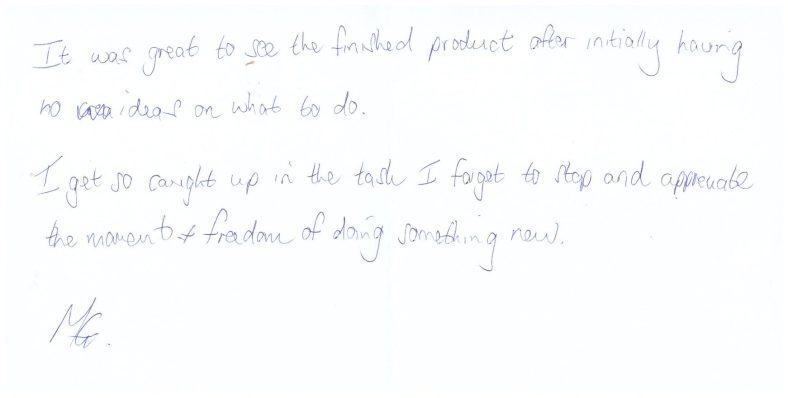 It was great to see the finished product after initially having
no ideas on what to do.
I get so caught up in the task I forget to stop and appreciate
the moment & freedom of doing something new.